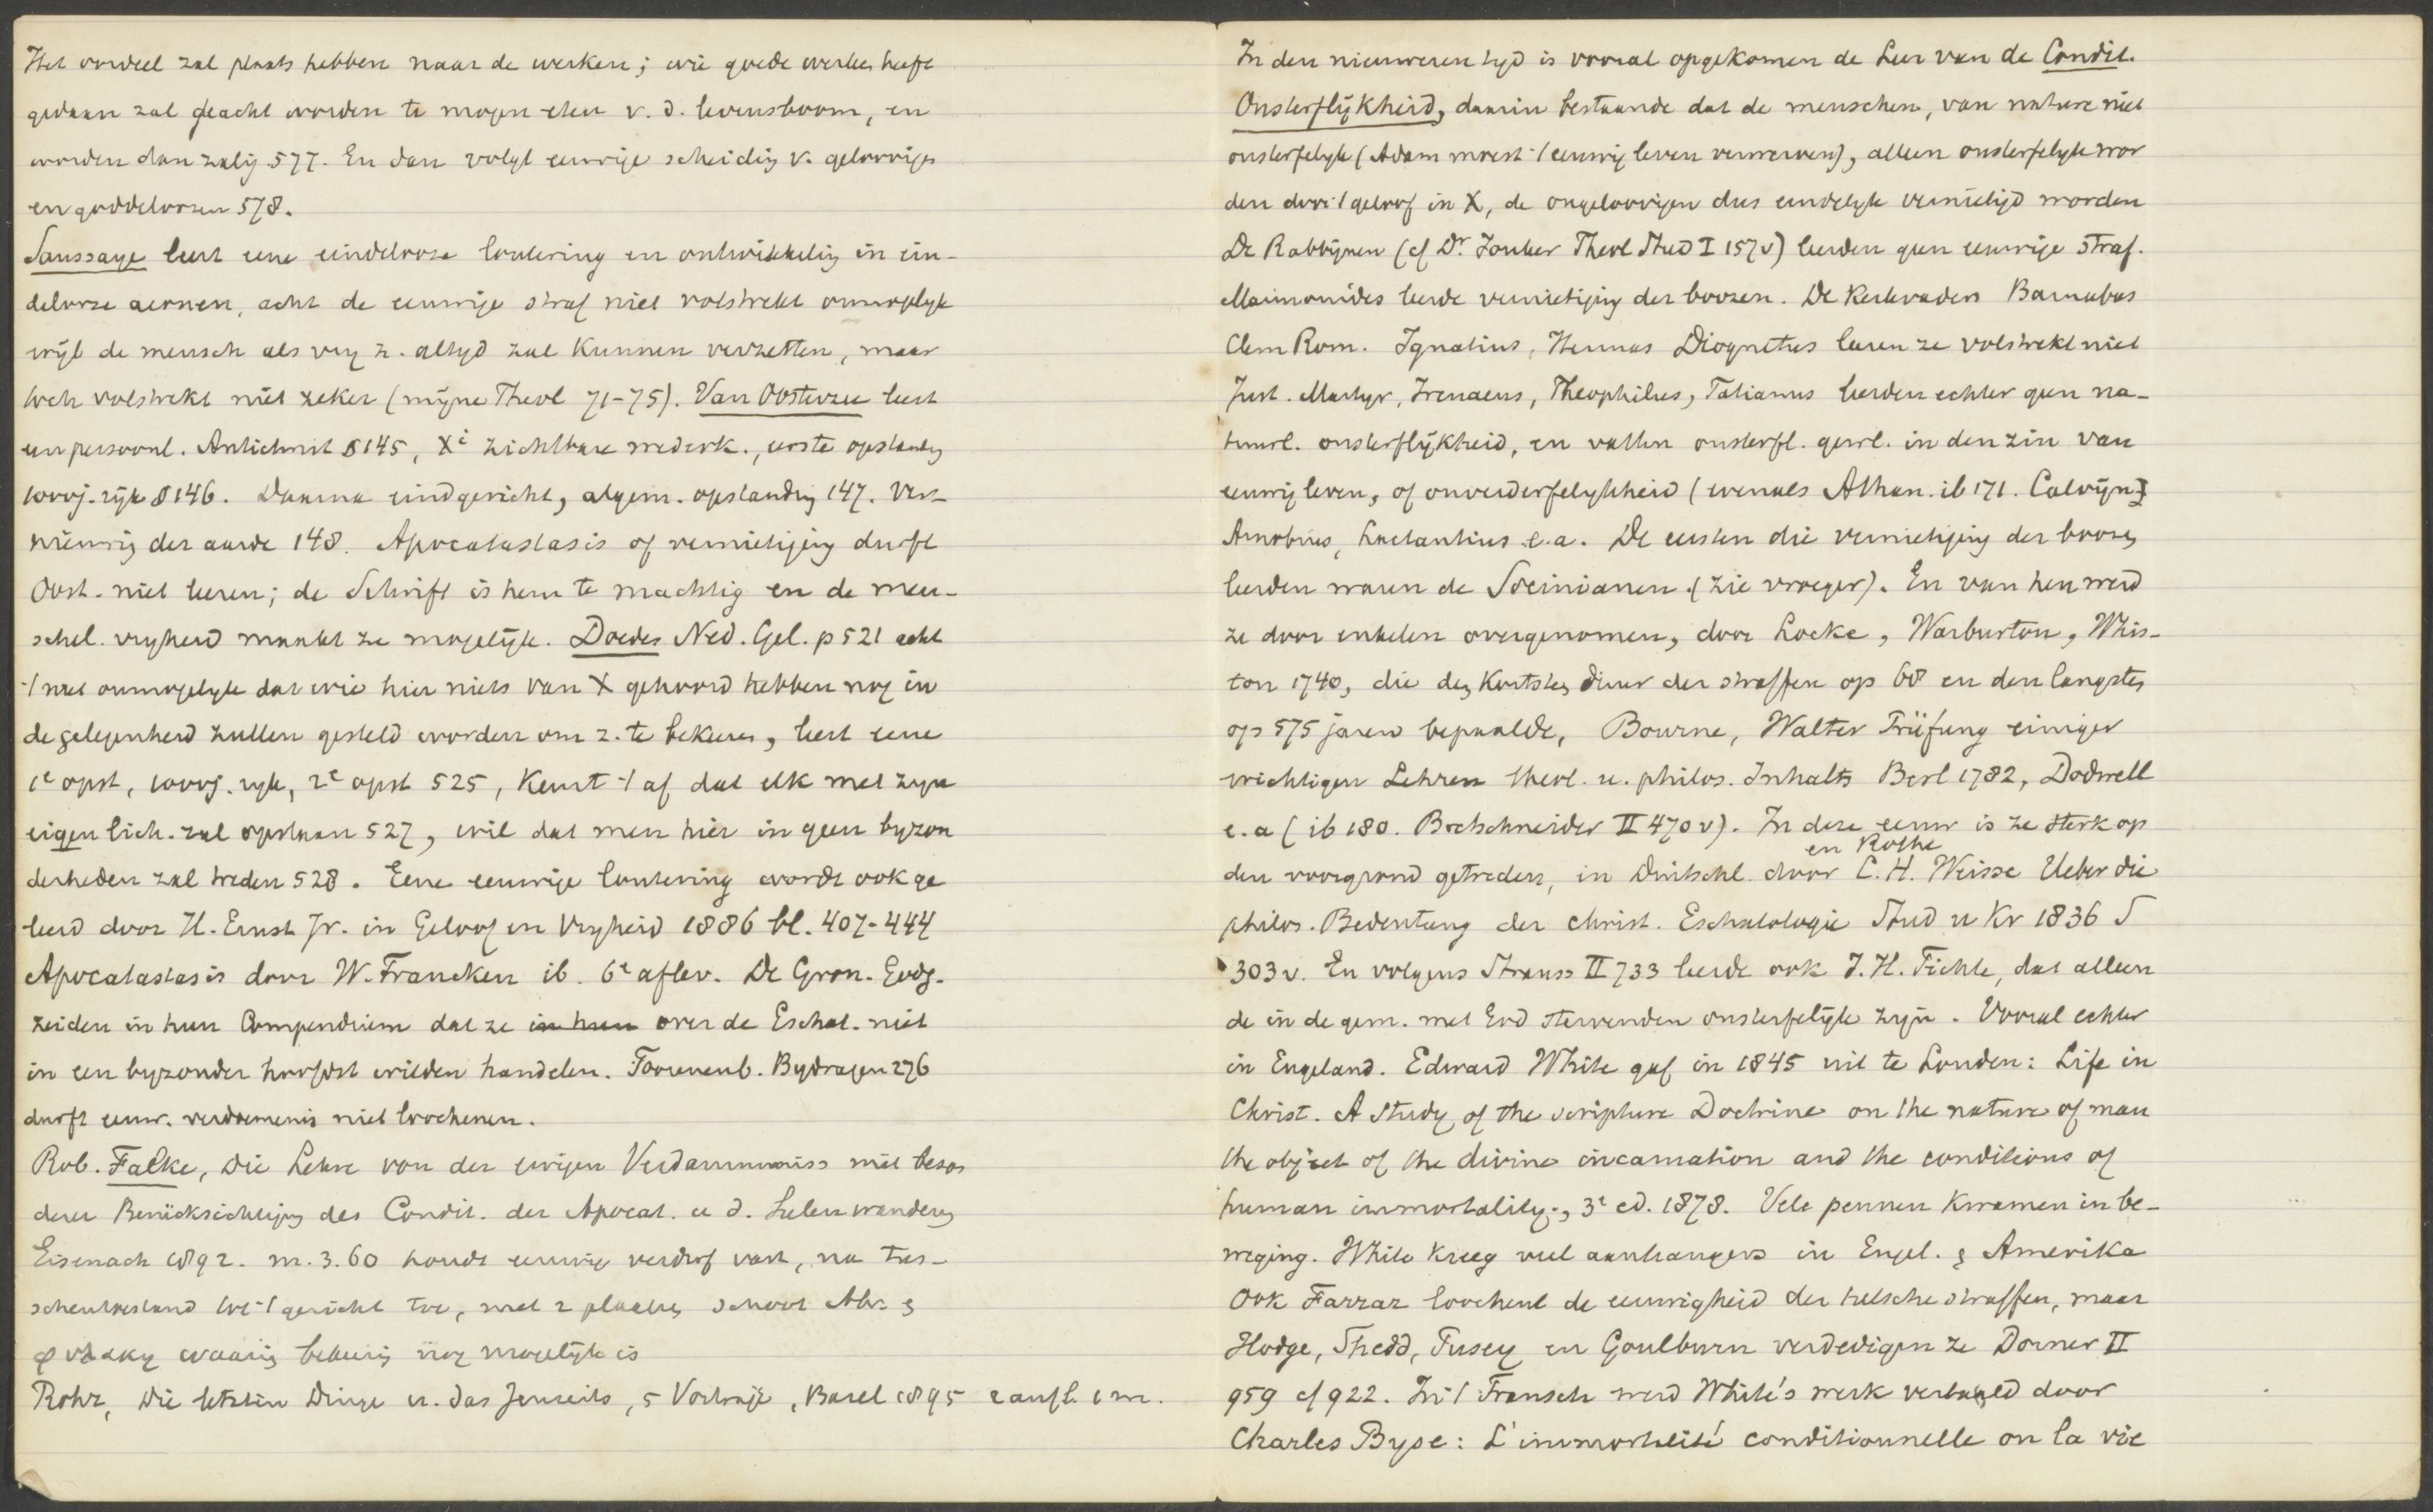 Het oordeel zal plaats hebben naar de werken; wie goede werken heeft
gedaan zal geacht worden te mogen eten v. d. levensboom, en
worden dan zalig 577. En dan volgt eeuwige scheidig v. geloovigen
en goddeloozen 578.
Saussaye leert eene eindelooze loutering en ontwikkelig in ein-
delooze aeonen, acht de eeuwige straf niet volstrekt onmogelyk
wijl de mensch als vry z. altyd zal kunnen verzetten, maar
toch volstrekt niet zeker (mijne Theol 71-75). Van Oosterzee leert
een persoonl. Antichrist § 145, Xi zichtbare wederk., eerste opstandg
1000j. rijk § 146. Daarna eindgericht, algem. opstanding 147. Ver-
nieuwig der aarde 148. Apocatastasis of vernietiging durft
Oost. niet leeren; de Schrift is hem te machtig en de men-
schel. vryheid maakt ze mogelijk. Doedes Ned. Gel. p 521 acht
't niet onmogelyk dat wie hier niets van X gehoord hebben nog in
de gelegenheid zullen gesteld worden om z. te bekeeren, leert eene
1e opst, 1000j. ryk, 2e opst 525, keurt 't af dat elk met zyn
eigen lich. zal opstaan 527, wil dat men hier in geen byzon
derheden zal treden 528. Eene eeuwige loutering wordt ook ge
leerd door H. Ernst Jr. in Geloof en Vryheid 1886 bl. 407-444
Apocatastasis door W. Francken ib. 6e aflev. De Gron. Godg.
zeiden in hun Compendium dat ze in hun over de Eschat. niet
in een byzonder hoofdst wilden handelen. Toorenenb. Bydragen 276
durft eeuw. verdoemenis niet loochenen.
Rob. Falke, Die Lehre von der ewigen Verdammniss mit beson
derer Berücksichtigung des Condit. der Apocat. u d. Seelenwanderg
Eisenach 1892. m. 3.60 houdt eeuwig verderf vast, na tus-
schentoestand tot 't gericht toe, met 2 plaatsen schoot Abr. &
φυλακη waarin bekeerig nog mogelijk is
Rohr, Die letzten Dinge u. das Jenseits, 5 Vorträge, Basel 1895 2 aufl. 1 m.
In den nieuweren tyd is vooral opgekomen de Leer van de Condit.
Onsterflijkheid, daarin bestaande dat de menschen, van nature niet
onsterfelyk (Adam moest 't eeuwig leven verwerven), alleen onsterfelyk wor
den door 't geloof in X, de ongeloovigen dus eindelyk vernietigd worden
De Rabbijnen (cf Dr. Jonker Theol Stud I 157v) leerden geen eeuwige straf.
Maimonides leerde vernietiging der boozen. De Kerkvaders Barnabas
Clem Rom. Ignatius, Hermas Diognetus leeren ze volstrekt niet
Just. Martyr, Irenaeus, Theophilus, Tatianus leerden echter geen na-
tuurl. onsterflijkheid, en vatten onsterfl. gewl. in den zin van
eeuwig leven, of onverderfelykheid (evenals Athan. ib 171. Calvijn)
Arnobius, Lactantius e.a. De eersten die vernietiging der boozen
leerden waren de Socinianen (zie vroeger). En van hen werd
ze door enkelen overgenomen, door Locke, Warburton, Whis-
ton 1740, die den kortsten duur der straffen op 60 en den langsten
op 575 jaren bepaalde, Bourne, Walter Prüfung einiger
wichtigen Lehren theol. u. philos. Inhalts Berl 1782, Dodwell
e.a (ib 180. Bretschneider II 470v). In deze eeuw is ze sterk op
en Rothe
den voorgrond getreden, in Duitschl. door C. H. Weisse Ueber die
philos. Bedeutung der christ. Eschatologie Stud u Kr 1836 S
303v. En volgens Strauss II 733 leerde ook J. H. Fichte, dat alleen
de in de gem. met God stervenden onsterfelijk zijn. Vooral echter
in Engeland. Edward White gaf in 1845 uit te Londen: Life in
Christ. A study of the scripture Doctrine on the nature of man
the object of the divine incarnation and the conditions of
human immortality., 3e ed. 1878. Vele pennen kwamen in be-
weging. White kreeg veel aanhangers in Engel. & Amerika
Ook Farrar loochent de eeuwigheid der helsche straffen, maar
Hodge, Shedd, Pusey en Goulburn verdedigen ze Dorner II
959 cf 922. In 't Fransch werd White's werk vertaald door
Charles Byse: L'immortalité conditionnelle ou la vie